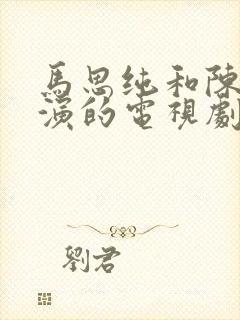 馬思纯和陳
演的電視劇
劉君